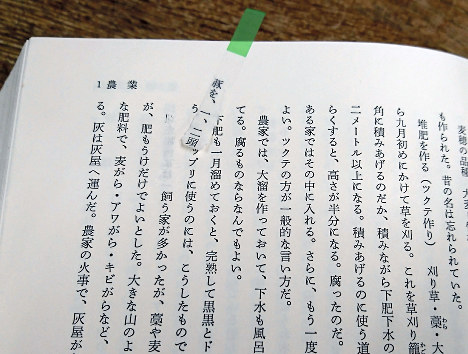 1 農業
麦穂の品種 大麦
も作られた。昔の名は忘れられていた。
堆肥を作る（ツクテ作り） 刈り草・藁・大
ら九月初めにかけて草を刈る。これを草刈り籠
角に積みあげるのだか、積みながら下肥下水の
二メートル以上になる。積みあげるのに使う道
らくすると、高さが半分になる。腐ったのだ。
ある家ではその中に入れる。さらに、もう一度
よい。ツクテの方が一般的な言い方だ。
農家では、大溜を作っておいて、下水も風呂
てる。腐るものならなんでもよい。
下肥も一月溜めておくと、完熟して黒黒とド
う。
ップリに使うのには、こうしたもので
豚を、一、二頭
飼う家が多かったが、藁や麦
が、肥もうけだけでよしとした。大きな山のよ
な肥料で、麦がら・アワがら・キビがらなど、
る。灰は灰屋へ運んだ。農家の火事で、灰屋が